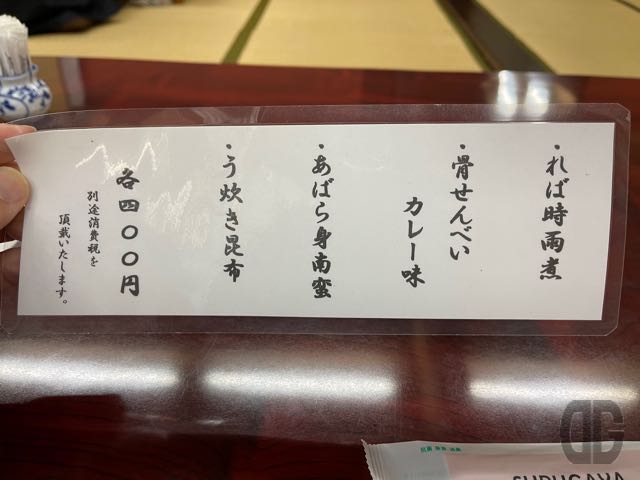 ・れば時雨煮
・骨せんべい
カレー味
・あばら身南蛮
・う炊き昆布
各四〇〇円
別途消費税を
頂戴いたします。
SURUGAYA
DG